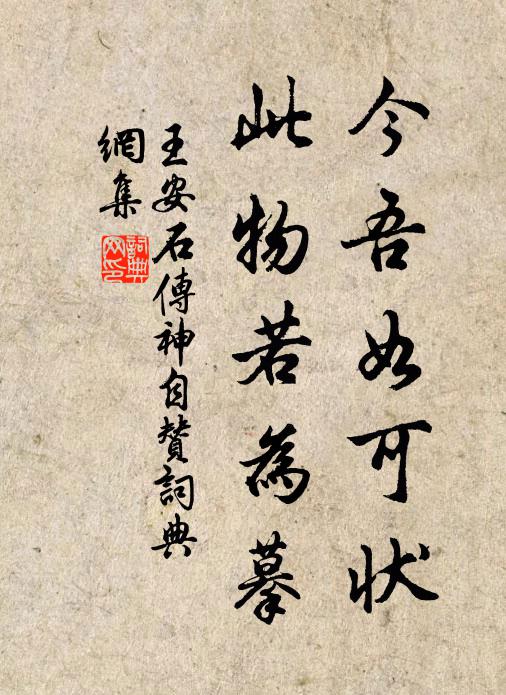 今吾如可状
此物若為摹
王安石傳神自賛詞典
網集
詞典网印